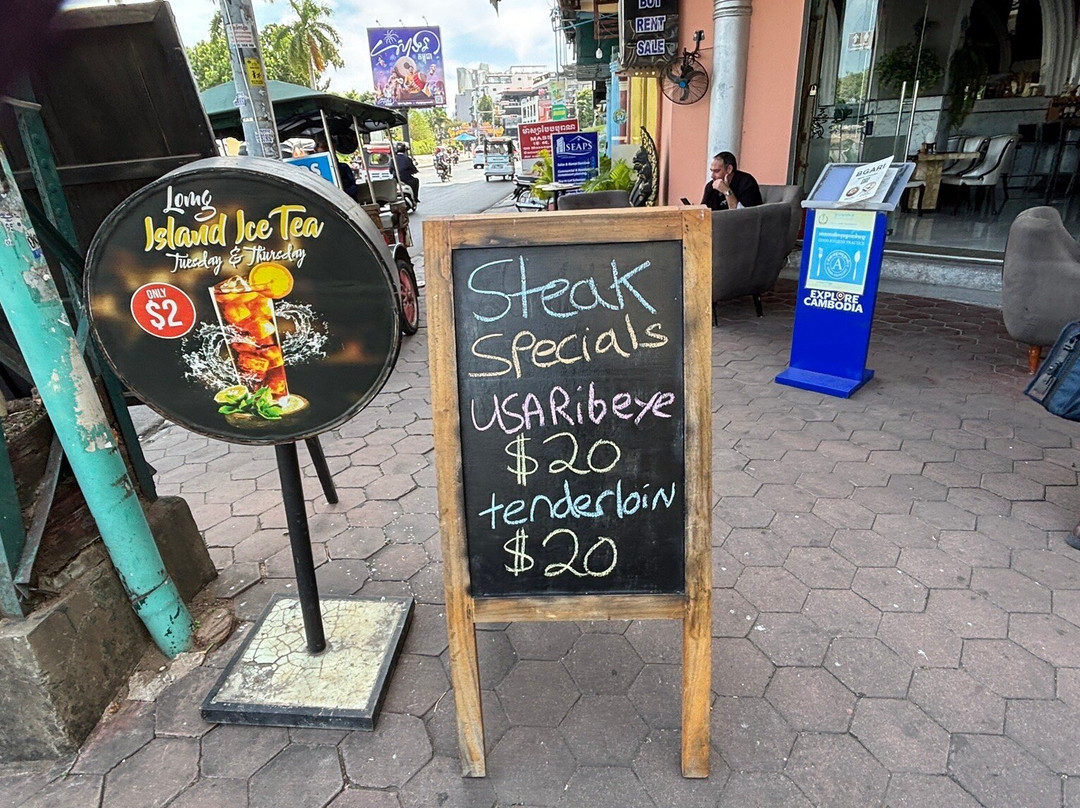 Long
Island Ice Tea
Tuesday & Thursday
ONLY
$2
Steak
Specials
USA Ribeye
$20
tenderloin
$20
BUY
RENT
SALE
SEAPS
BGAR
A
EXPLORE
CAMBODIA